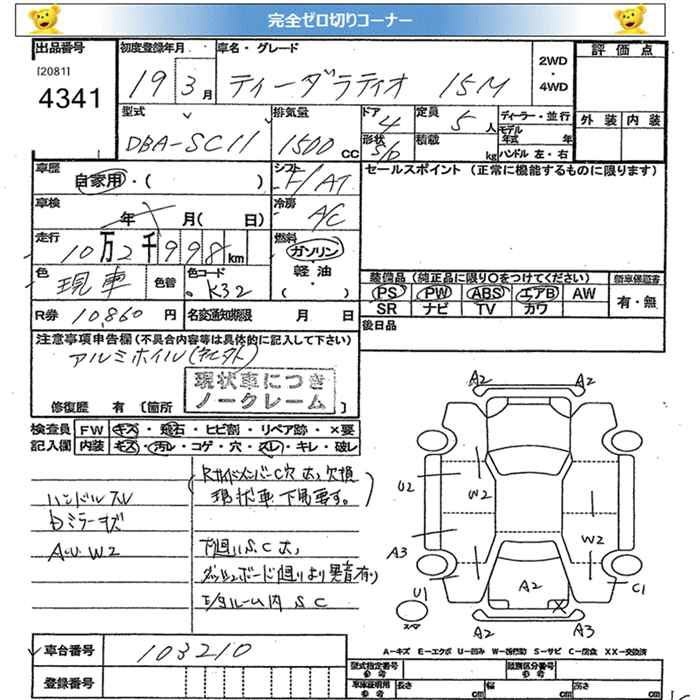 完全ゼロ切りコーナー
出品番号 初度登録年月 車名・グレード 2WD・4WD 評価点
[2081]
4341 19 3月 ティーダラティオ 15M
型式 排気量 ドア 定員 ディーラー・並行 外装 内装
DBA-SC11 1500cc 4 5人 モデル年式 年
形状 S/D 積載 kg ハンドル 左・右
車歴 自家用・( ) シフト F/AT セールスポイント(正常に機能するものに限ります)
車検 年 月( 日) 冷房 A/C
走行 10万2千998km 燃料 ガソリン
軽油・( )
色 現車 色替 色コード K32 装備品(純正品に限り○をつけてください) 新車保証書
PS PW ABS エアB AW 有・無
SR ナビ TV カワ
R券 10,860円 名変通知期限 月 日 後日品
注意事項申告欄(不具合内容等は具体的に記入して下さい)
アルミホイル(
現状車につき
ノークレーム
修復歴 有 [箇所
検査員 FW キズ・飛石・ヒビ割・リペア跡・×要
記入欄 内装 キズ・汚レ・コゲ・穴・スレ・キレ・破レ
ハンドルスレ
ミラーキズ
W2
(RサイドメンバーC穴大、欠損
現状車 下見要す。)
下廻りS.C大
ダッシュボード廻りより異音有り
S C
A2 A2
U2 W2 W2
A3
U1 A2 X C1
スペア A2 A3
A-キズ E-エクボ U-凹み W-板金跡 S-サビ C-腐食 XX-交換済
車台番号 103210
登録番号
型式指定番号 参考 類別区分番号 参考
車庫証明用 参考 長さ cm 幅 cm 高さ cm